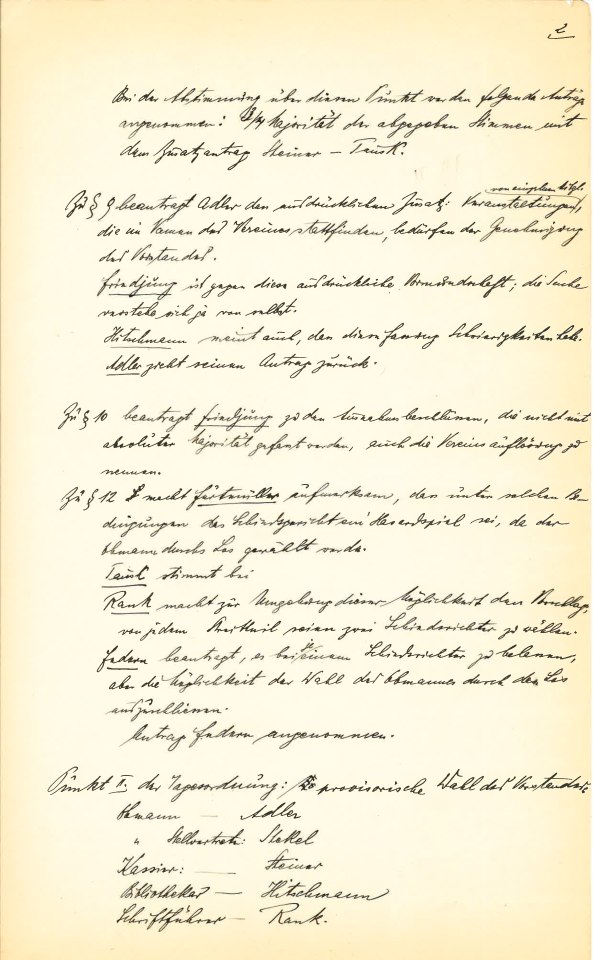 2
Bei der Abstimmung über diesen Punkt werden folgende Anträge
angenommen: 3/4 Majorität der abgegeben Stimmen mit
dem Zusatzantrag Steiner – Tausk.
von einzelnen Mitgl.
Zu § 9 beantragt Adler den ausdrücklichen Zusatz: Veranstaltungen,
die im Namen des Vereines stattfinden, bedürfen der Genehmigung
des Vorstandes.
Friedjung ist gegen diese ausdrückliche Bevormundschaft; die Sache
verstehe sich ja von selbst.
Hitschmann meint auch, dass diese Fassung Schwierigkeiten habe.
Adler zieht seinen Antrag zurück.
Zu § 10 beantragt Friedjung zu den Ausnahmsbeschlüssen, die nicht mit
absoluter Majorität gefasst werden, auch die Vereinsauflösung zu
nennen.
Zu § 12 macht Furtmüller aufmerksam, dass unter solchen Be-
dingungen das Schiedsgericht ein Hasardspiel sei, da der
Obmann durchs Los gewählt werde.
Tausk stimmt bei
Rank macht zur Umgehung dieser Möglichkeit den Vorschlag,
von jedem Streitteil seien zwei Schiedsrichter zu wählen.
Federn beantragt, es bei je einem Schiedsrichter zu belassen,
aber die Möglichkeit der Wahl des Obmannes durch das Los
auszuschliessen.
Antrag Federn angenommen.
Punkt II. der Tagesordnung: provisorische Wahl des Vorstandes:
Obmann — Adler
" Stellvertreter: Stekel
Kassier: — Steiner
Bibliothekar — Hitschmann
Schriftführer — Rank.